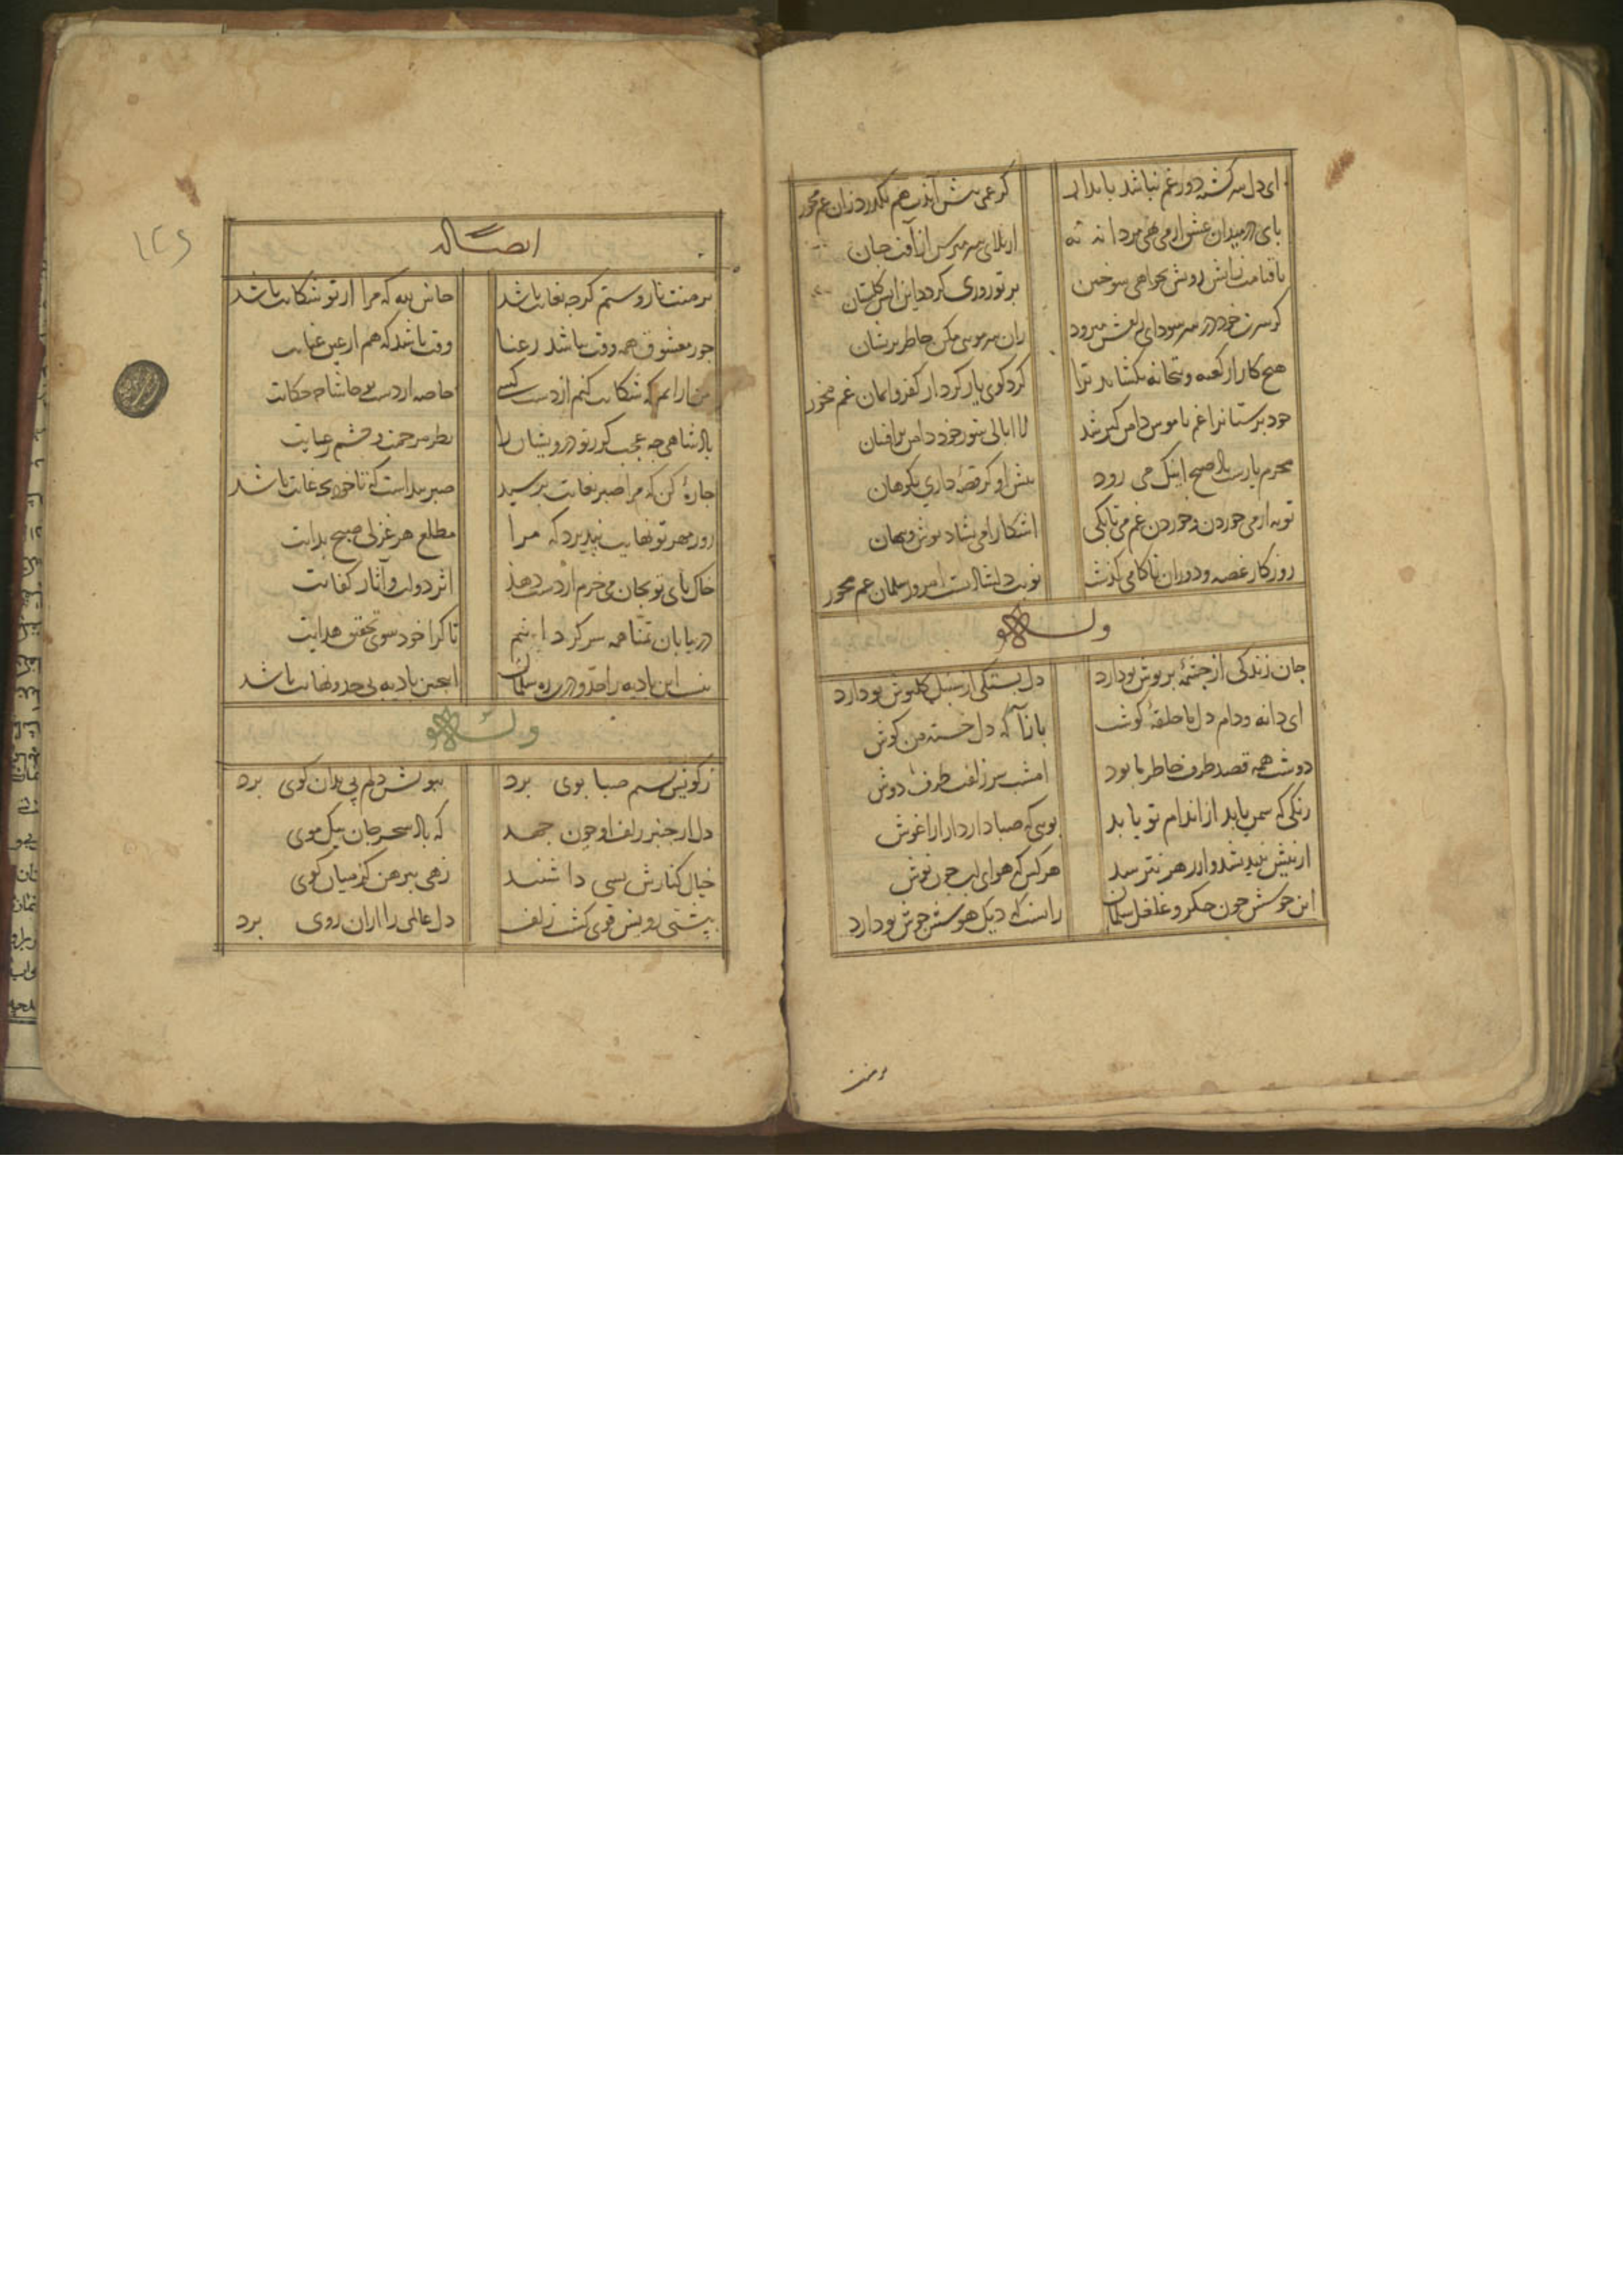 ای دل سرکشته دور غم نباشد پایدار کر غمی پیش آیدت هم بکذرد زان غم مخور
پای در میدان عشق ار می نهی مردانه نه از بلای سر مترس از آفت جان
تا قیامت زاتش رویش بخواهی سوختن بر تو روزی کردد این اتش کلستان
کر سرت خود در سر سودای زلفش میرود زان سر مویی مکن خاطر پریشان
هیچ کار از کعبه و بتخانه نکشاید ترا کرد کوی یار کرد از کفر و ایمان غم مخور
خود پرستانرا غم ناموس دامن کیر شد لا ابالی شو ز خود دامن برافشان
محرم یارست باد صبح اینک می رود پیش او کر قصه داری بکو هان
توبه از می خوردن و خوردن غم می تا بکی اشکارا می بشادی نوش و پنهان
روزکار غصه و دوران ناکامی کذشت نوبت دلشادیست امروز سلمان غم مخور
وله
جان زندکی از چشمه پر نوش تو دارد دل بستکی از سنبل کلپوش تو دارد
ای دانه و دام دل ما حلقه کوشت بازآ که دل خسته من کوش
دوشت همه قصد طرف خاطر ما بود امشب سر زلفت طرف دوش
رنکی که سمن یابد از اندام تو یابد بویی که صبا دارد از اغوش
از نیش نیندیشد و از زهر نترسد هر کس که هوای لب چون نوش
این جوشش خون جکر و غلغل سلمان زانست که دیک هوسش جوش تو دارد
بر منت
ایضا له
بر منت ناز و ستم کر چه بغایت باشد حاش لله که مرا از تو شکایت باشد
جور معشوق همه وقت نباشد ز عنا وقت باشد که هم از عین عنایت
من نه آنم که شکایت کنم از دست کسی خاصه از دست تو حاشا چه حکایت
پادشاهی چه عجب کر ز تو درویشان را نظر مرحمت و چشم رعایت
چاره کن که مرا صبر بغایت برسید صبر پیداست که تا خود بچه غایت باشد
روز مهر تو نهایت نپذیرد که مرا مطلع هر غزلی صبح بدایت
خاک پای تو بجان می خرم ار دست دهد اثر دولت و آثار کفایت
در بیابان تمنا همه سر کردانیم تا کرا خود سوی تحقیق هدایت
نیست این بادیه را حد و در ره سلمان اینچنین بادیه بی حد و نهایت باشد
وله
ز کویش نسیم صبا بوی برد ببویش دلم پی بدان کوی برد
دل از چنبر زلف او چون جهد که باد سحر جان بیک موی
خیال کنارش بسی داشتند زهی پیرهن کز میان کوی
بپشتی رویش قوی کشت زلف دل عالمی را ازان روی برد